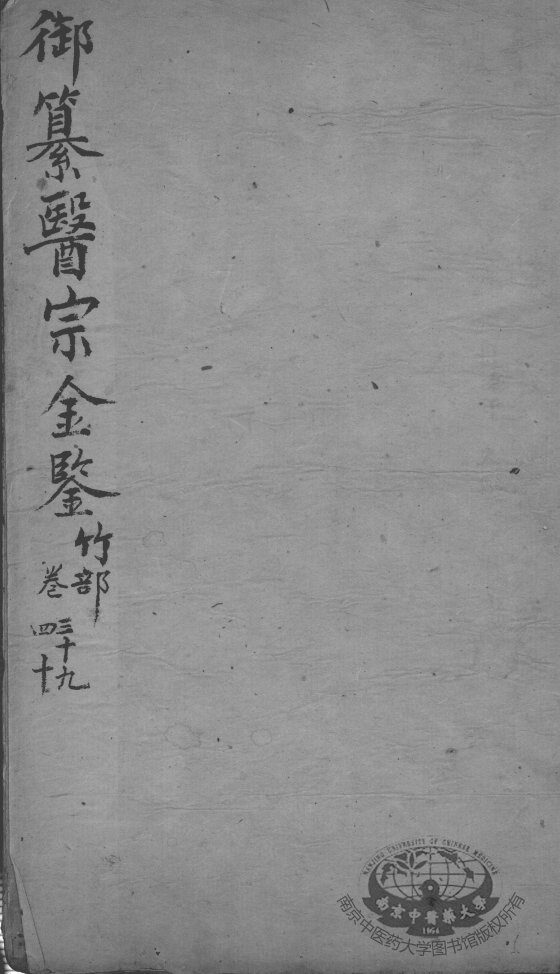 御纂醫宗金鑒
竹部
三十九
卷四十
NANJING UNIVERSITY OF CHINESE MEDICINE
南京中醫藥大學
1954
南京中医药大学图书馆版权所有